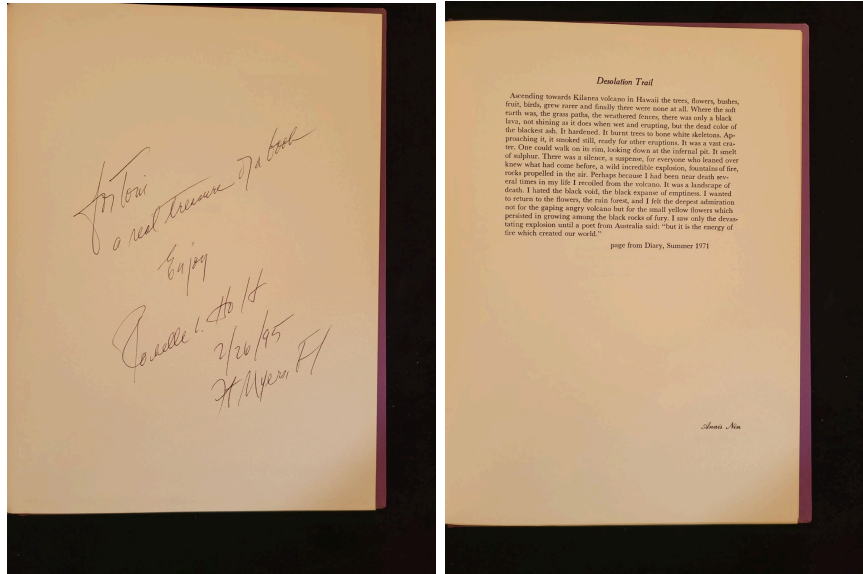 for Toni
a real treasure of a book
Enjoy
Rochelle L. Holt
2/26/95
Ft Myers, Fl
Desolation Trail
Ascending towards Kilanea volcano in Hawaii the trees, flowers, bushes,
fruit, birds, grew rarer and finally there were none at all. Where the soft
earth was, the grass paths, the weathered fences, there was only a black
lava, not shining as it does when wet and erupting, but the dead color of
the blackest ash. It hardened. It burnt trees to bone white skeletons. Ap-
proaching it, it smoked still, ready for other eruptions. It was a vast cra-
ter. One could walk on its rim, looking down at the infernal pit. It smelt
of sulphur. There was a silence, a suspense, for everyone who leaned over
knew what had come before, a wild incredible explosion, fountains of fire,
rocks propelled in the air. Perhaps because I had been near death sev-
eral times in my life I recoiled from the volcano. It was a landscape of
death. I hated the black void, the black expanse of emptiness. I wanted
to return to the flowers, the rain forest, and I felt the deepest admiration
not for the gaping angry volcano but for the small yellow flowers which
persisted in growing among the black rocks of fury. I saw only the devas-
tating explosion until a poet from Australia said: "but it is the energy of
fire which created our world."
page from Diary, Summer 1971
Anais Nin